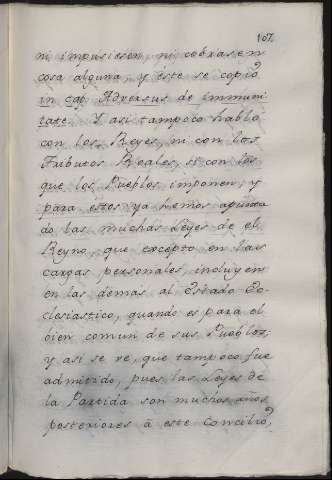 107
ni impusiesen, ni cobrasen
cosa alguna, y éste se copió
in cap. Adversus de immuni
tate. Y así tampoco habla
con los Reyes, ni con los
Tributos Reales, si con los
que los Pueblos imponen, y
para estos ya Lemos apunta
do las muchas Leyes de el
Reyno, que excepto en las
cargas personales, incluyen
en las demas al Estado Ec-
clesiastico, quando es para el
bien comun de sus Pueblos;
y así se ve, que tampoco fue
admitido, pues las Leyes de
la Partida son muchos años
posteriores á este Concilio,